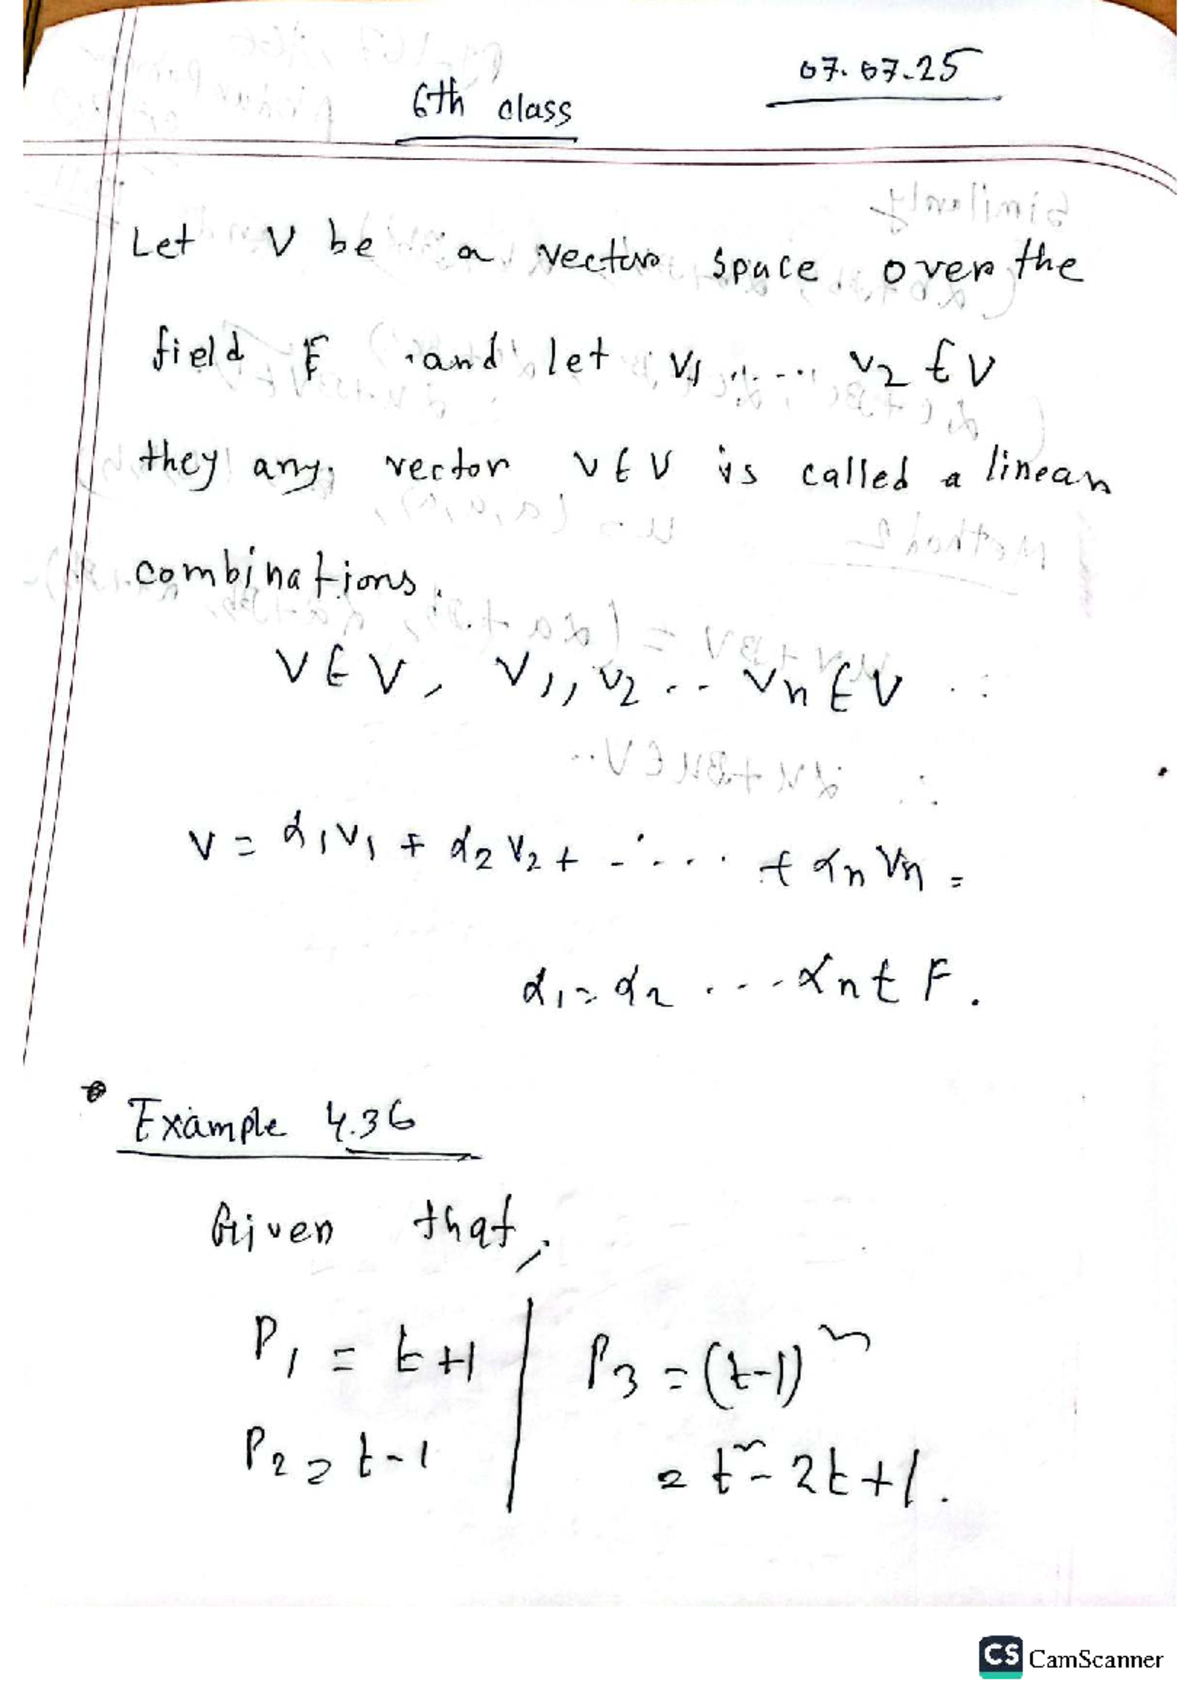 6th class
07.07.25
Let V be a vector space over the
field F and let v1, .... v2 ∈ V
they any vector v ∈ V is called a linear
combinations.
v ∈ V, v1, v2 .. vn ∈ V
v = α1v1 + α2v2 + - .... + αnvn =
α1 = α2 .... αn ∈ F.
Example 4.36
Given that,
P1 = t+1
P2 = t-1
P3 = (t-1)²
= t² - 2t + 1.
CS CamScanner